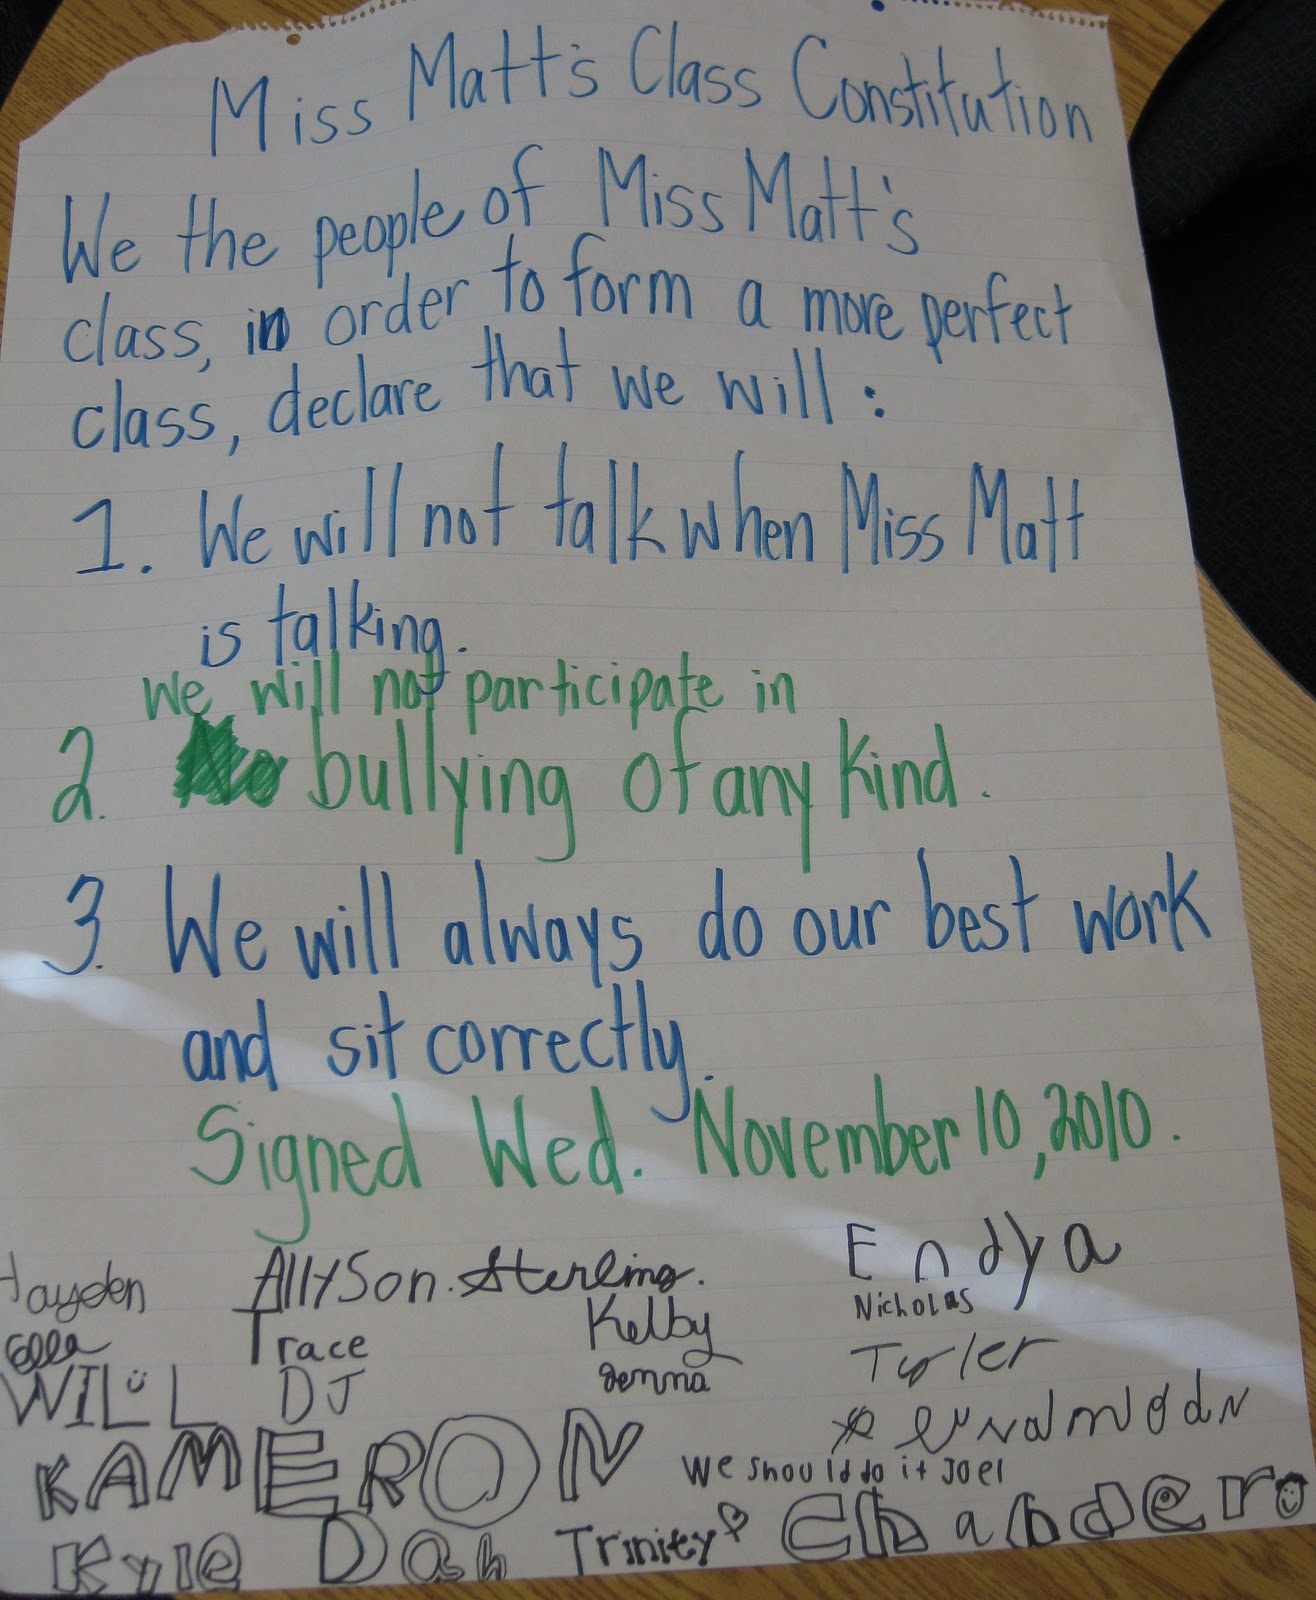 Miss Matt's Class Constitution
We the people of Miss Matt's
class, in order to form a more perfect
class, declare that we will:
1. We will not talk when Miss Matt
is talking.
We will not participate in
2. bullying of any kind.
3. We will always do our best work
and sit correctly.
Signed Wed. November 10, 2010.
Hayden Allyson. Sterling. Endya
Ella Trace Kelby Nicholas
WILL DJ Jenna Tyler
KAMERON we should do it Joel
Kyle Dah Trinity Chandero